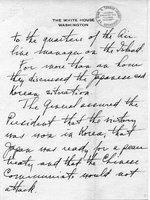 THE WHITE HOUSE
WASHINGTON
to the quarters of the Air
line Manager on the Island.
For more than an hour
they discussed the Japanese and
Korean situation.
The General assured the
President that the victory
was won in Korea, that
Japan was ready for a peace
treaty and that the Chinese
Communists would not
attack.